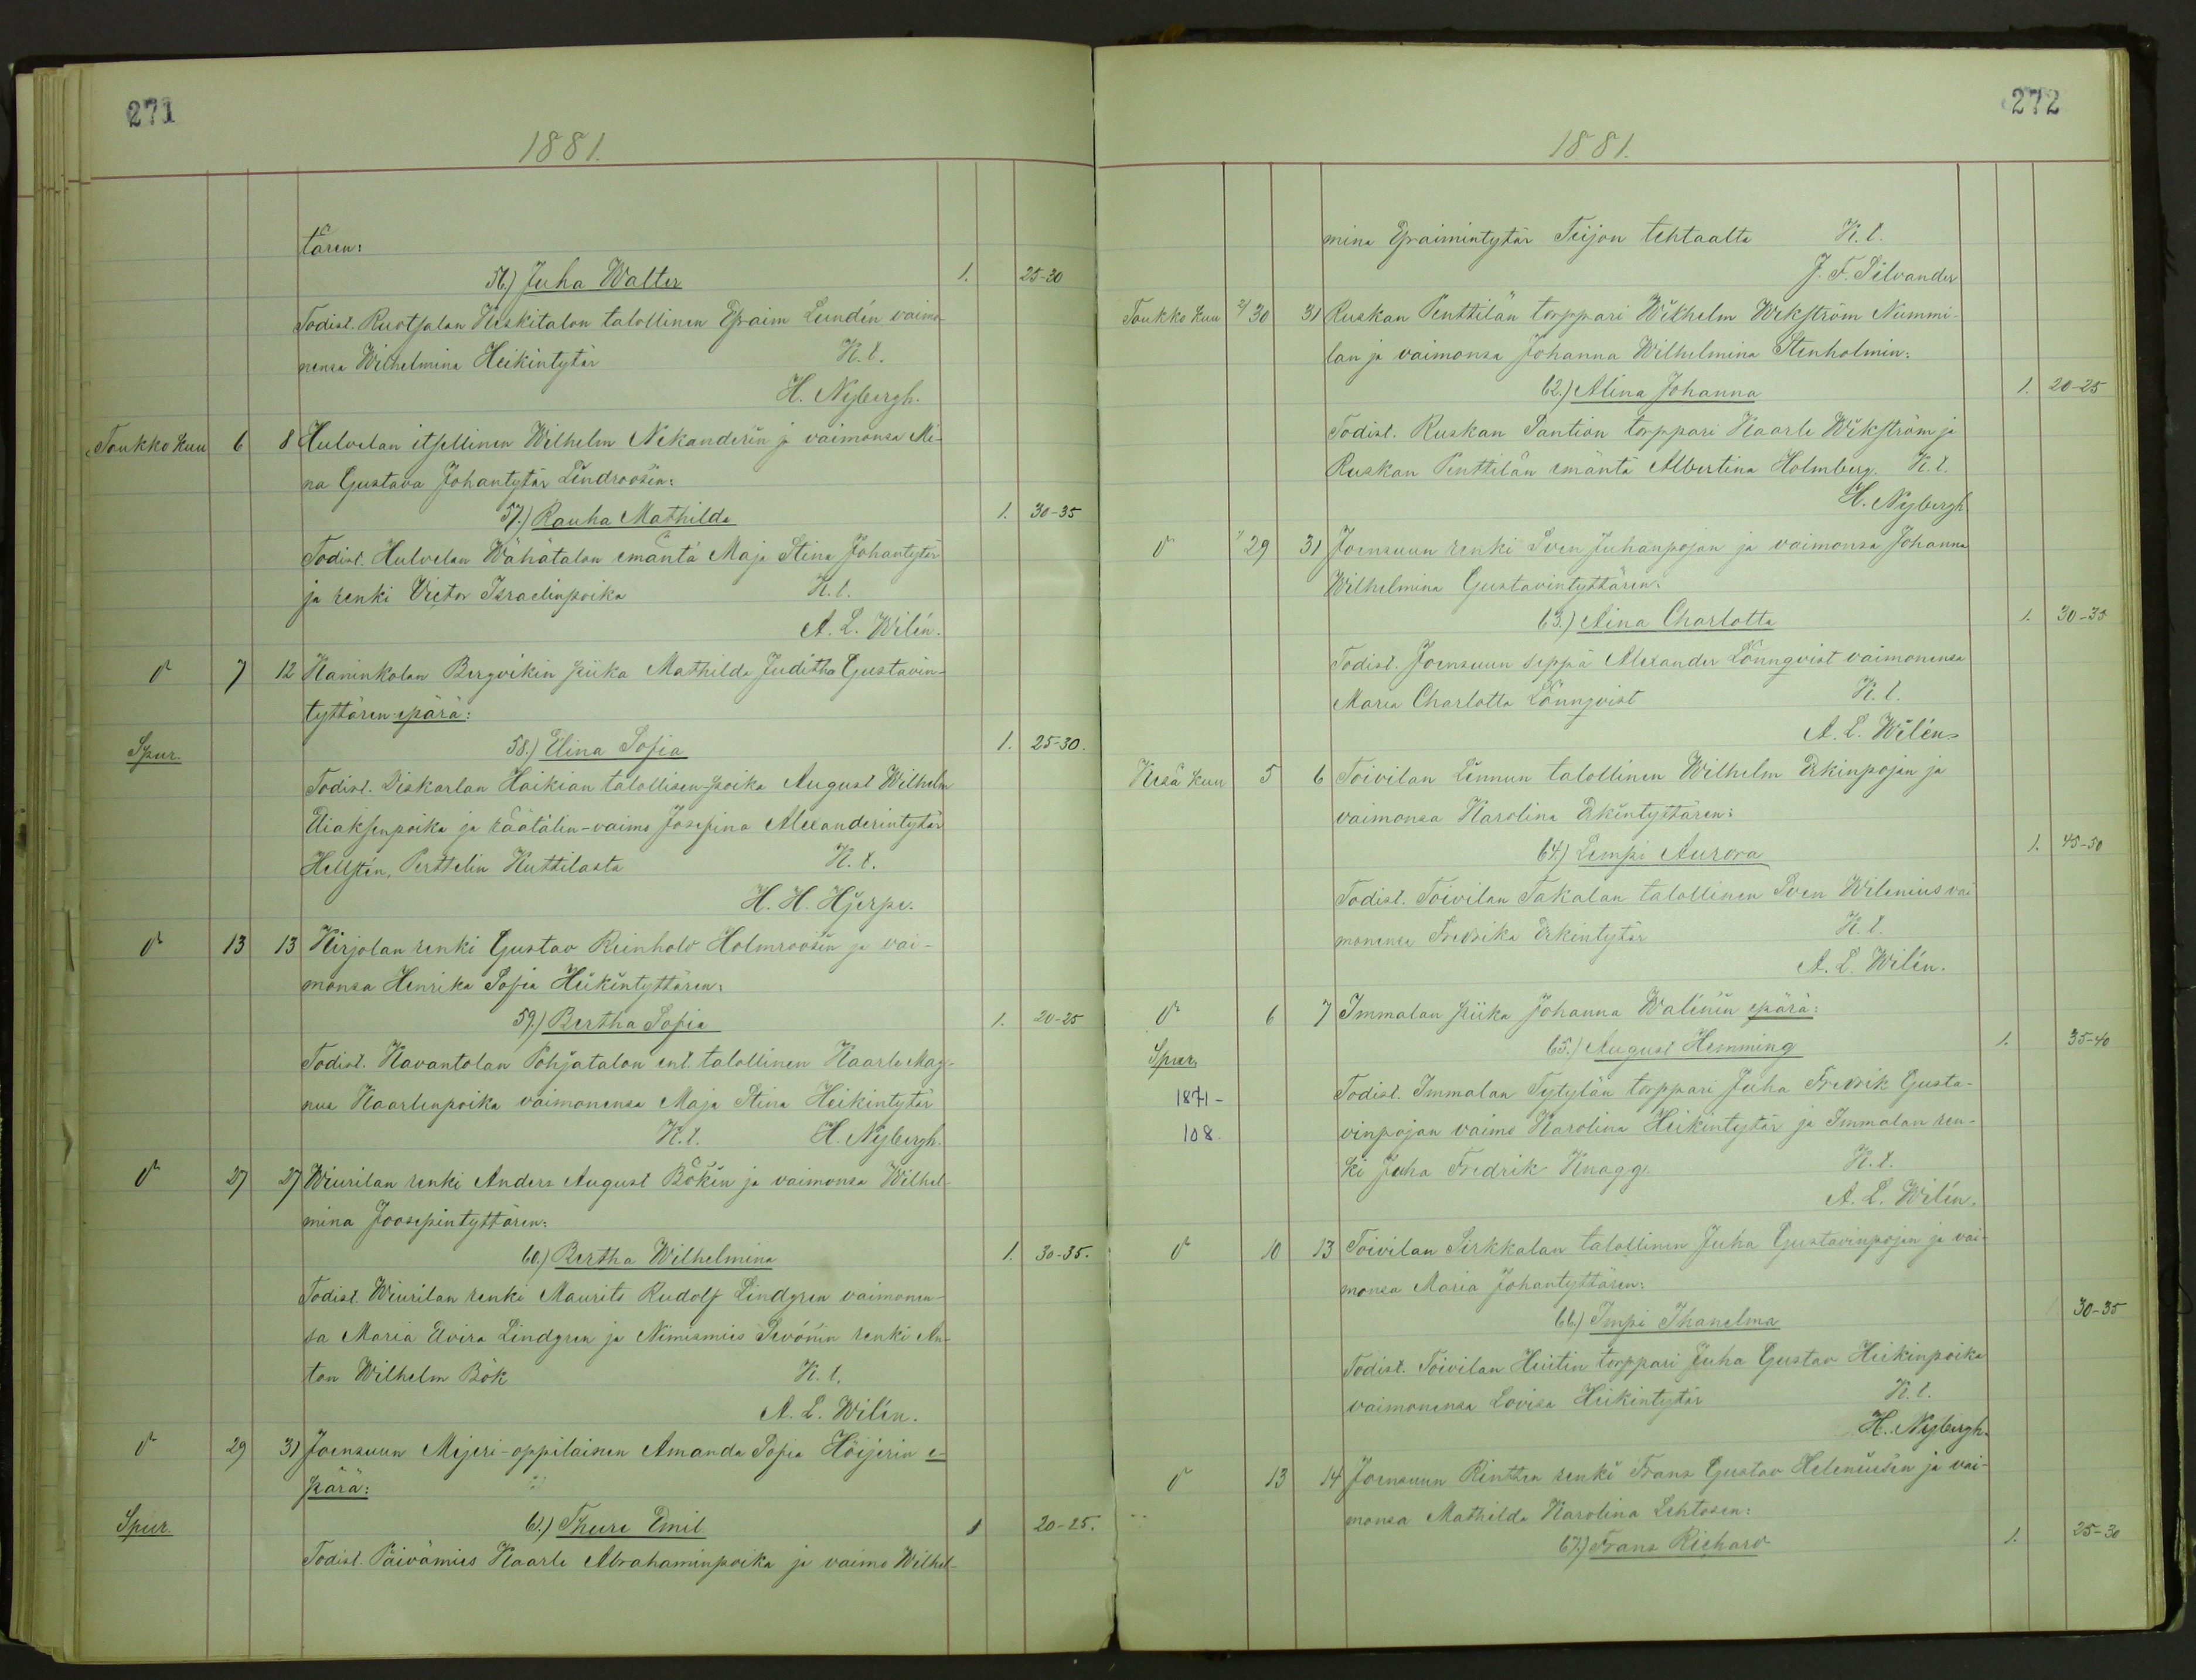 271
1881.
tären:
56.) Juha Walter 1. 25-30
Todist. Ruotsalan Keskitalon talollinen Efraim Lundén vaimo-
nensa Wilhelmina Heikintytär K. l.
H. Nybergh.
Toukko kuu 6 8 Hulvelan itsellinen Wilhelm Nekanderin ja vaimonsa Mi-
na Gustava Johantytär Lindroosin:
57.) Rauha Mathilda 1. 30-35
Todist. Hulvelan Wähätalon emäntä Maja Stina Johantytär
ja renki Victor Israelinpoika K. l.
A. L. Wilén.
d:o 7 12 Kaninkolan Bergvikin piika Mathilda Juditha Gustavin-
tyttären epärä:
Spur. 58.) Elina Sofia 1. 25-30.
Todist. Diskarlan Haikian talollisen-poika August Wilhelm
Eliaksenpoika ja räätälin-vaimo Josefina Alexanderintytär
Hellstén, Perttelin Kuttilasta K. l.
H. H. Hjerpe.
d:o 13 13 Kirjolan renki Gustav Reinhold Holmroosin ja vai-
monsa Henrika Sofia Heikintyttären:
59.) Bertha Sofia 1. 20-25
Todist. Kavantolan Pohjatalon ent. talollinen Kaarle Mag-
nus Kaarlenpoika vaimonensa Maja Stina Heikintytär
K. l. H. Nybergh.
d:o 27 27 Wiurilan renki Anders August Bökin ja vaimonsa Wilhel-
mina Joosepintyttären:
60.) Bertha Wilhelmina 1. 30-35.
Todist. Wiurilan renki Maurits Rudolf Lindgren vaimonen-
sa Maria Elvira Lindgren ja Nimismies Sevónin renki An-
ton Wilhelm Bök K. l.
A. L. Wilén.
d:o 29 31 Joensuun Mejeri-oppilaisen Amanda Sofia Höijerin e-
pärä:
Spur. 61.) Thure Emil 1 20-25.
Todist. Päivämies Kaarle Abrahaminpoika ja vaimo Wilhel-
272
1881.
mina Efraimintytär Teijon tehtaalta K. l.
J. F. Silvander
Toukko kuu 30 31 Ruskan Penttilän torppari Wilhelm Wekström Nummi-
lan ja vaimonsa Johanna Wilhelmina Stenholmin:
62.) Alina Johanna 1. 20-25
Todist. Ruskan Santion torppari Kaarle Wikström ja
Ruskan Penttilän emäntä Albertina Holmberg. K. l.
H. Nybergh
d:o 29 31 Joensuun renki Sven Juhanpojan ja vaimonsa Johanna
Wilhelmina Gustavintyttären:
63.) Aina Charlotta 1. 30-35
Todist. Joensuun seppä Alexander Lönnqvist vaimonensa
Maria Charlotta Lönnqvist K. l.
A. L. Wilén.
Kesä kuu 5 6 Toivilan Linnun talollinen Wilhelm Erkinpojan ja
vaimonsa Karolina Erkintyttären:
64.) Lempi Aurora 1. 45-50
Todist. Toivilan Takalan talollinen Sven Wilenius vai
monensa Fredrika Erkintytär K. l.
A. L. Wilén.
d:o 6 7 Immalan piika Johanna Walénin epärä:
Spur. 65.) August Hemming 1. 35-40
1871- Todist. Immalan Tytylän torppari Juha Fredrik Gusta-
108. vinpojan vaimo Karolina Heikintytär ja Immalan ren-
ki Juha Fredrik Knagg. K. l.
A. L. Wilén.
d:o 10 13 Toivilan Sirkkalan talollinen Juha Gustavinpojan ja vai-
monsa Maria Johantyttären:
66.) Impi Ihanelma 30-35
Todist. Toivilan Heitin torppari Juha Gustav Heikinpoika
vaimonensa Lovisa Heikintytär K. l.
H. Nybergh.
d:o 13 14 Joensuun Rintten renki Frans Gustav Heleniusen ja vai-
monsa Mathilda Karolina Lehtosen:
67.) Frans Richard 1. 25-30